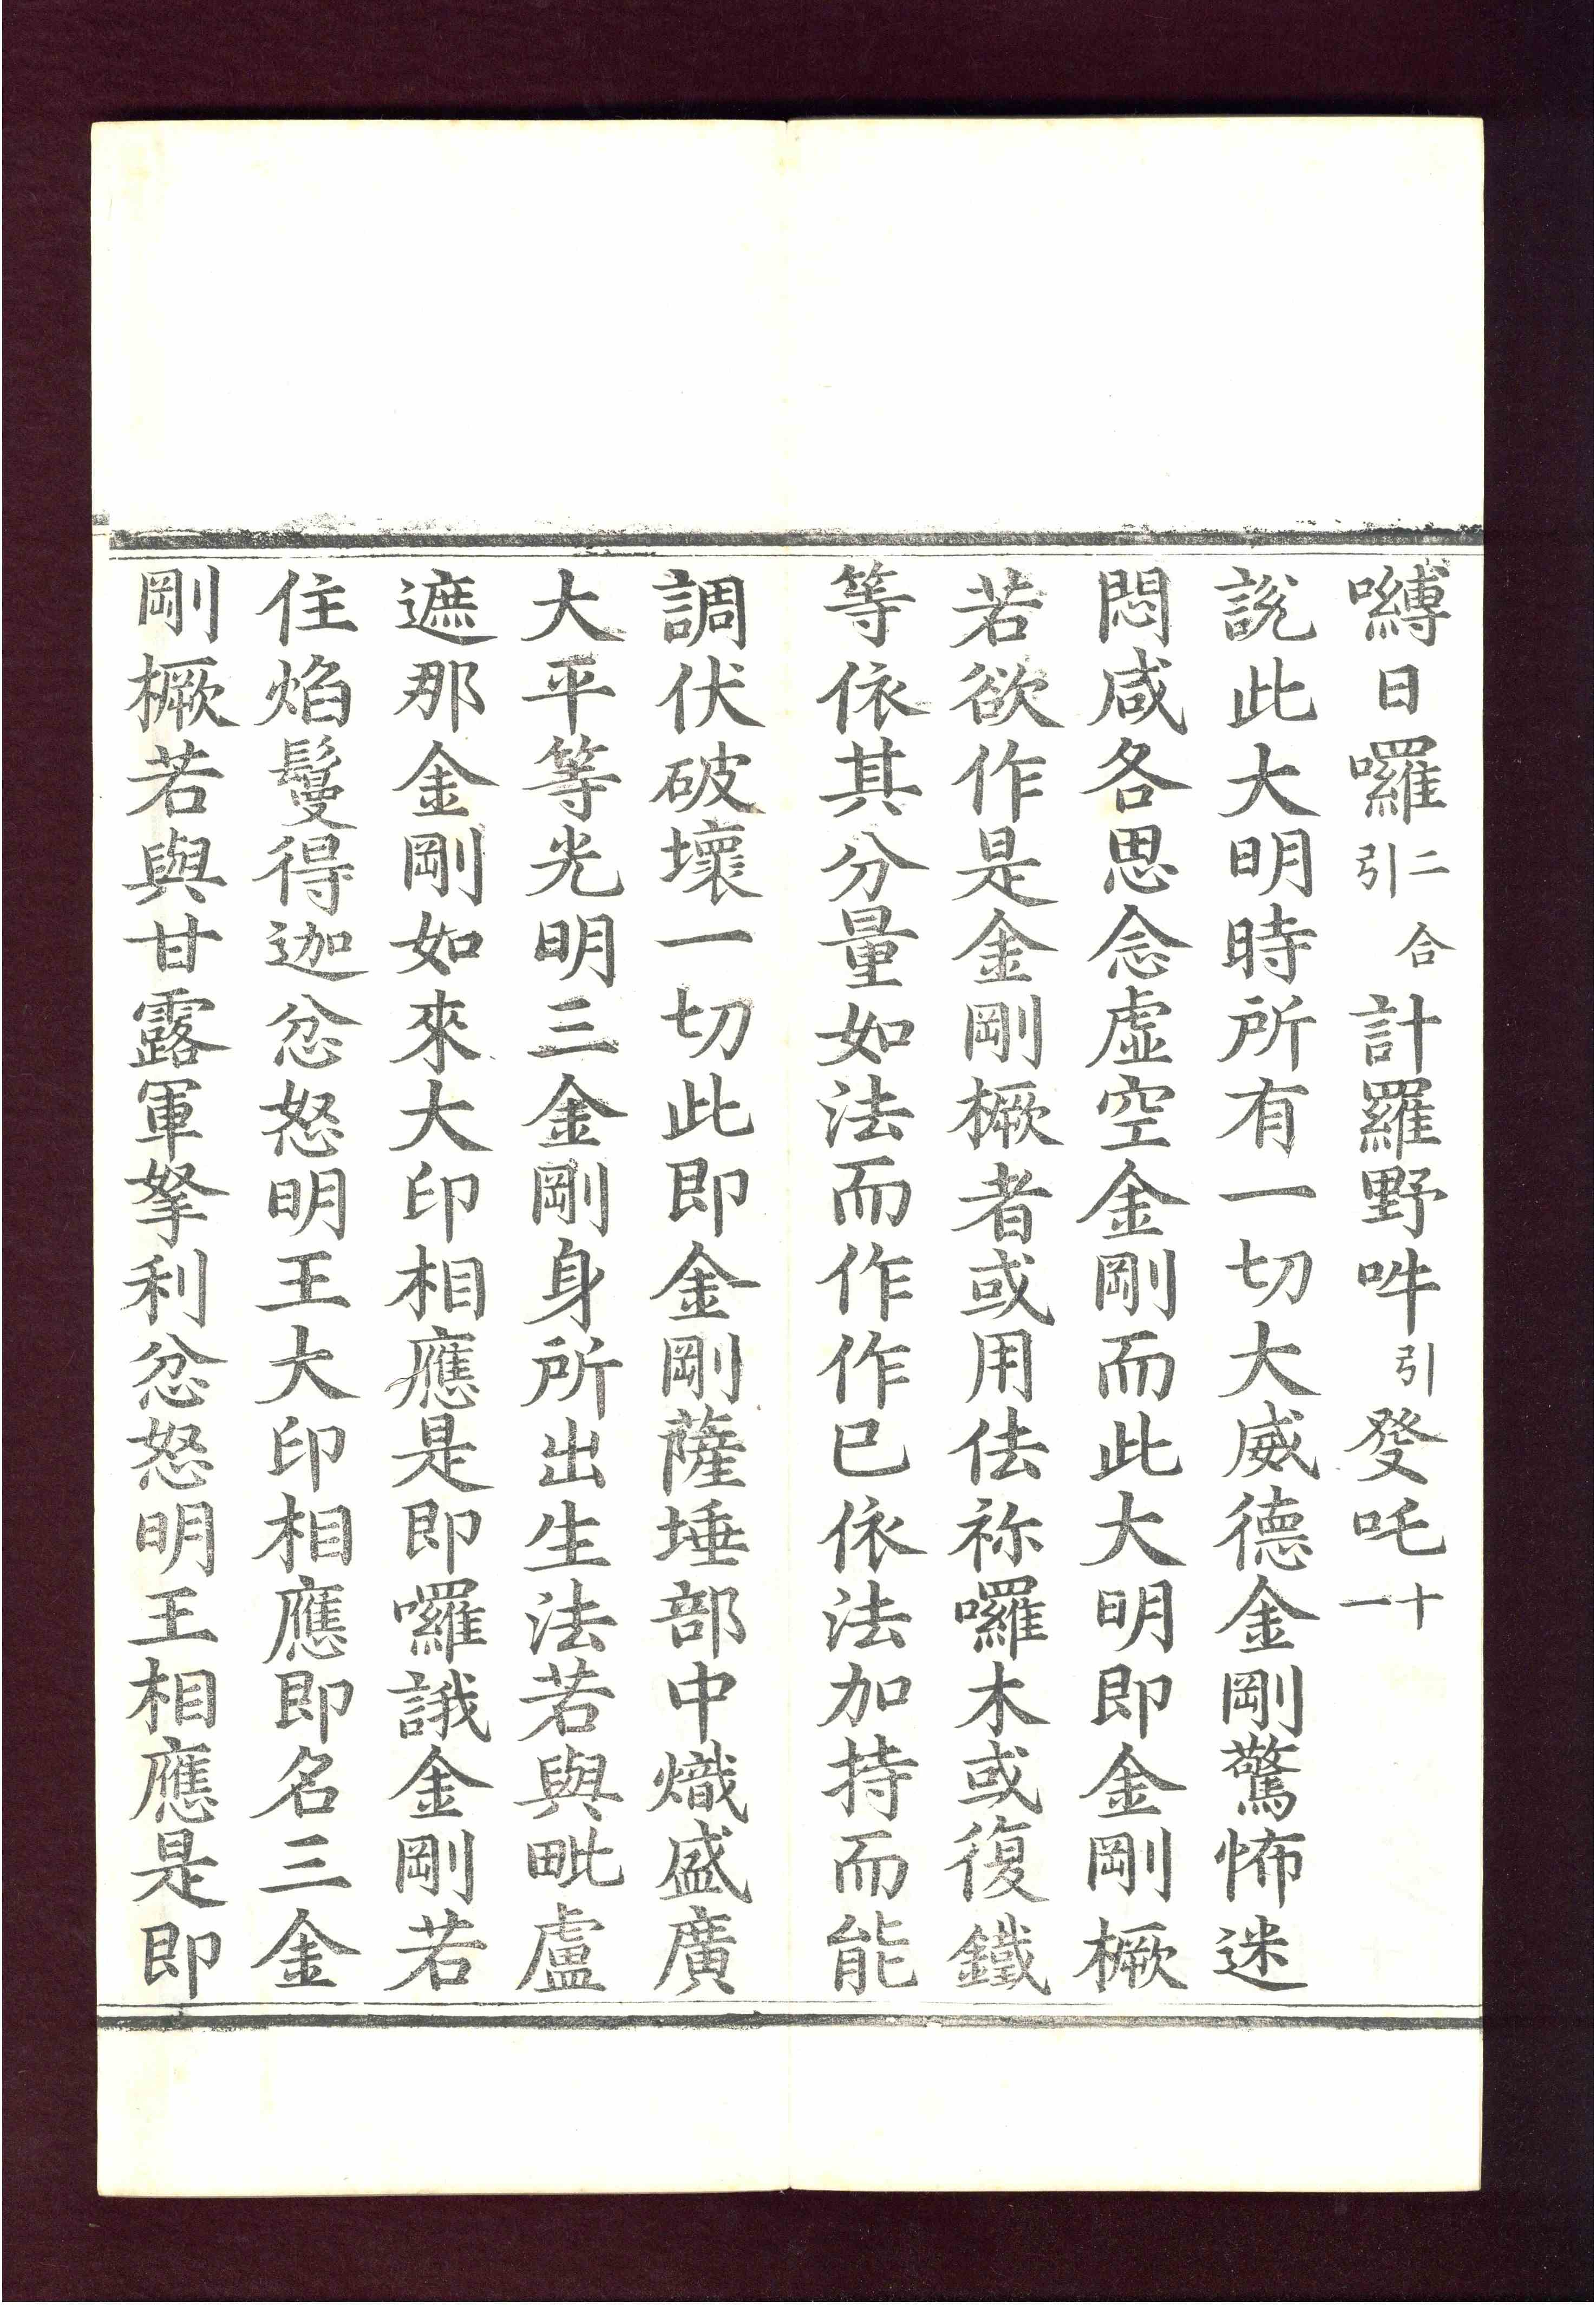 嚩日囉二合引計羅野吽引發吒十一
說此大明時所有一切大威德金剛驚怖迷
悶咸各思念虛空金剛而此大明即金剛橛
若欲作是金剛橛者或用佉祢囉木或復鐵
等依其分量如法而作作已依法加持而能
調伏破壞一切此即金剛薩埵部中熾盛廣
大平等光明三金剛身所出生法若與毗盧
遮那金剛如來大印相應是即囉誐金剛若
住焰鬘得迦忿怒明王大印相應即名三金
剛橛若與甘露軍拏利忿怒明王相應是即